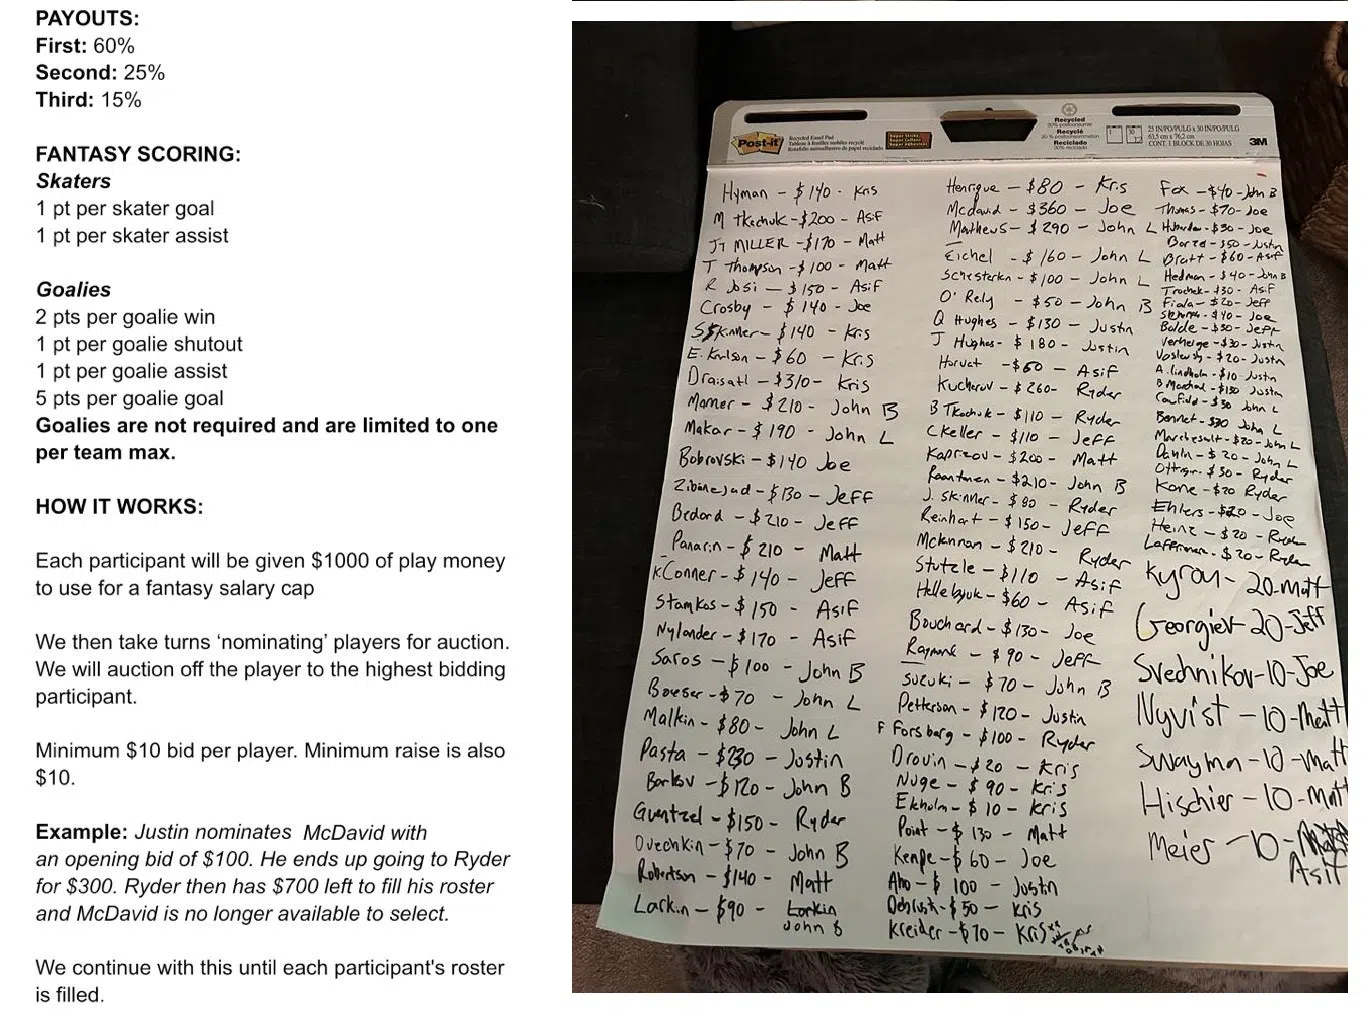 PAYOUTS:
First: 60%
Second: 25%
Third: 15%
FANTASY SCORING:
Skaters
1 pt per skater goal
1 pt per skater assist
Goalies
2 pts per goalie win
1 pt per goalie shutout
1 pt per goalie assist
5 pts per goalie goal
Goalies are not required and are limited to one
per team max.
HOW IT WORKS:
Each participant will be given $1000 of play money
to use for a fantasy salary cap
We then take turns ‘nominating’ players for auction.
We will auction off the player to the highest bidding
participant.
Minimum $10 bid per player. Minimum raise is also
$10.
Example: Justin nominates McDavid with
an opening bid of $100. He ends up going to Ryder
for $300. Ryder then has $700 left to fill his roster
and McDavid is no longer available to select.
We continue with this until each participant's roster
is filled.
Post-it
Recycled Easel Pad
Super Sticky
Recycled
Recyclé
Reciclado
25 IN/PO/PULG x 30 IN/PO/PULG
63,5 cm x 76,2 cm
CONT. 1 BLOCK DE 30 HOJAS
3M
Hyman - $140 - Kris
M Tkachuk - $200 - Asif
JT MILLER - $170 - Matt
T Thompson - $100 - Matt
R Josi - $150 - Asif
Crosby - $140 - Joe
S Skinner - $140 - Kris
E. Karlson - $60 - Kris
Draisatl - $310 - Kris
Marner - $210 - John B
Makar - $190 - John L
Bobrovski - $140 Joe
Zibanejad - $130 - Jeff
Bedard - $210 - Jeff
Panarin - $210 - Matt
K Conner - $140 - Jeff
Stamkos - $150 - Asif
Nylander - $170 - Asif
Saros - $100 - John B
Boeser - $70 - John L
Malkin - $80 - John L
Pasta - $230 - Justin
Barkov - $120 - John B
Guentzel - $150 - Ryder
Ovechkin - $70 - John B
Robertson - $140 - Matt
Larkin - $90 - Larkin
John B
Henrique - $80 - Kris
Mcdavid - $360 - Joe
Matheus - $290 - John L
Eichel - $160 - John L
Schesterkn - $100 - John L
O'Rely - $50 - John B
Q Hughes - $130 - Justin
J Hughes - $180 - Justin
Horvat - $60 - Asif
Kucherov - $260 - Ryder
B Tkachuk - $110 - Ryder
C Keller - $110 - Jeff
Kaprizov - $200 - Matt
Raantnen - $210 - John B
J. Skinner - $80 - Ryder
Reinhart - $150 - Jeff
Mckinnon - $210 - Ryder
Stutzle - $110 - Asif
Hellebyuk - $60 - Asif
Bouchard - $130 - Joe
Raymond - $90 - Jeff
Suzuki - $70 - John B
Petterson - $120 - Justin
F Forsberg - $100 - Ryder
Drouin - $20 - Kris
Nuge - $90 - Kris
Ekholm - $10 - Kris
Point - $130 - Matt
Kempe - $60 - Joe
Aho - $100 - Justin
Debrusk - $50 - Kris
Kreider - $70 - Kris
Fox - $40 - John B
Thomas - $70 - Joe
Huberdau - $30 - Joe
Barzal - $50 - Justin
Bratt - $60 - Asif
Hedman - $40 - John B
Trochek - $30 - Asif
Fiala - $20 - Jeff
$40 - Joe
Boldy - $50 - Jeff
Verheige - $30 - Justin
$20 - Justin
A. Lindholm - $10 Justin
B Marchand - $130 Justin
Caufield - $30 John L
Bennet - $20 John L
Marchesalt - $20 - John L
$20 - John L
Otteger - $30 - Ryder
Kane - $20 Ryder
Ehlers - $20 - Joe
Heinz - $20 - Ryder
Lafferiniere - $20 - Ryder
Kyrou - 20 - Matt
Georgiev - 20 - Jeff
Svechnikov - 10 - Joe
Nyvist - 10 - Matt
Swayman - 10 - Matt
Hischier - 10 - Matt
Meier - 10 -
Asif